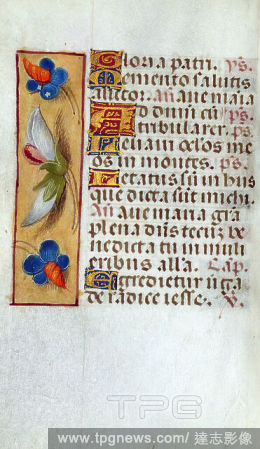 Gloria patri. ps.
Memento salutis
auctor. An̄. aue maria
Ad dn̄m cū
tribularer. ps.
Leuaui oc̄los me
os in montes. ps.
Letatus sū in hiis
que dicta sūt michi.
An̄ aue maria gr̄a
plena dn̄s tecū be
nedicta tu in muli
eribus alla. Cap.
Egredietur uirga
de radice iesse. V.
TPG
www.tpgnews.com/ 達志影像